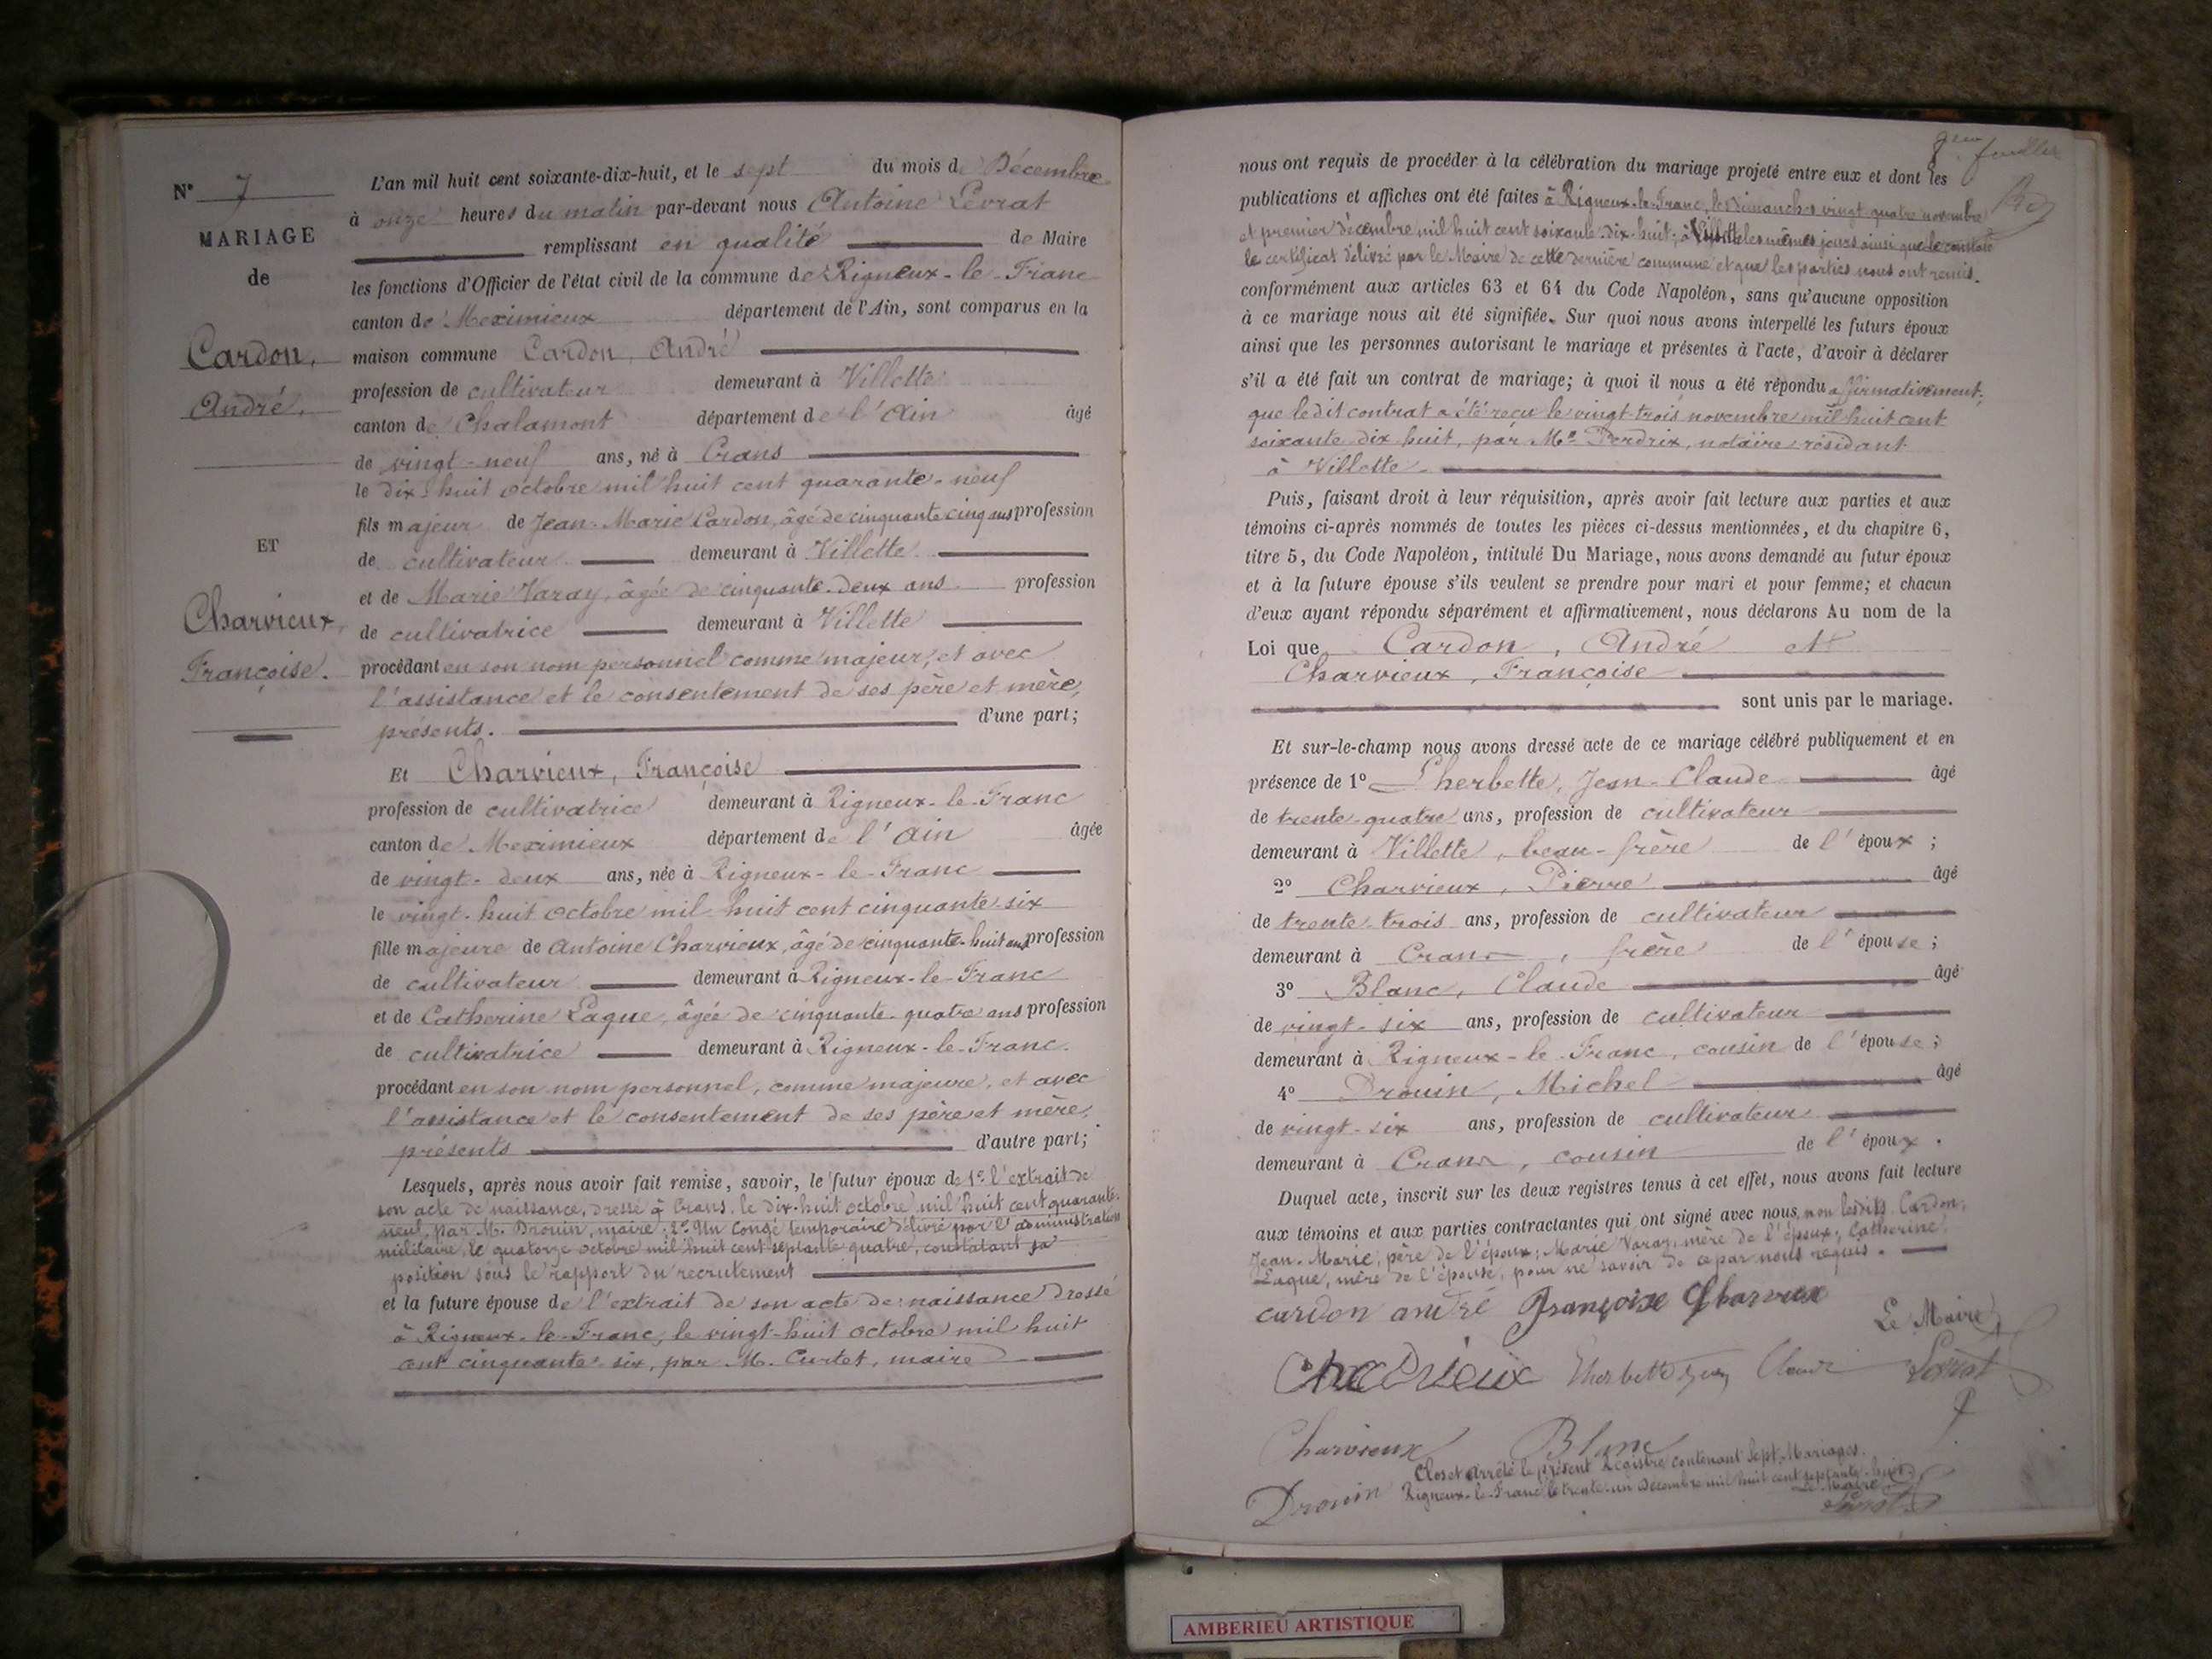 N° 7
MARIAGE
de
Cardon,
André.
ET
Charvieux,
Françoise.
L'an mil huit cent soixante-dix-huit, et le sept du mois de Décembre
à onze heures du matin par-devant nous Antoine Levrat
remplissant en qualité de Maire
les fonctions d'Officier de l'état civil de la commune de Rigneux-le-Franc
canton de Meximieux département de l'Ain, sont comparus en la
maison commune Cardon, André
profession de cultivateur demeurant à Villette
canton de Chalamont département de l'Ain âgé
de vingt-neuf ans, né à Crans
le dix-huit octobre mil huit cent quarante-neuf
fils majeur de Jean-Marie Cardon, âgé de cinquante cinq ans profession
de cultivateur demeurant à Villette
et de Marie Varay, âgée de cinquante-deux ans profession
de cultivatrice demeurant à Villette
procédant en son nom personnel comme majeur, et avec
l'assistance et le consentement de ses père et mère,
présents. d'une part;
Et Charvieux, Françoise
profession de cultivatrice demeurant à Rigneux-le-Franc
canton de Meximieux département de l'Ain âgée
de vingt-deux ans, née à Rigneux-le-Franc
le vingt-huit octobre mil huit cent cinquante-six
fille majeure de Antoine Charvieux, âgé de cinquante-huit ans profession
de cultivateur demeurant à Rigneux-le-Franc
et de Catherine Laque, âgée de cinquante-quatre ans profession
de cultivatrice demeurant à Rigneux-le-Franc.
procédant en son nom personnel, comme majeure, et avec
l'assistance et le consentement de ses père et mère,
présents d'autre part;
Lesquels, après nous avoir fait remise, savoir, le futur époux de 1° l'extrait de
son acte de naissance, dressé à Crans, le dix-huit octobre mil huit cent quarante-
neuf, par M. Drouin, maire; 2° Un congé temporaire délivré par l'administration
militaire, le quatorze octobre mil huit cent septante quatre, constatant sa
position sous le rapport du recrutement
et la future épouse de l'extrait de son acte de naissance dressé
à Rigneux-le-Franc, le vingt-huit octobre mil huit
cent cinquante-six, par M. Curtet, maire
feuillet
nous ont requis de procéder à la célébration du mariage projeté entre eux et dont les
publications et affiches ont été faites à Rigneux-le-Franc, les dimanches vingt quatre novembre
et premier décembre mil huit cent soixante-dix-huit; à Villette les mêmes jours ainsi que le constate
le certificat délivré par le Maire de cette dernière commune et que les parties nous ont remis.
conformément aux articles 63 et 64 du Code Napoléon, sans qu'aucune opposition
à ce mariage nous ait été signifiée. Sur quoi nous avons interpellé les futurs époux
ainsi que les personnes autorisant le mariage et présentes à l'acte, d'avoir à déclarer
s'il a été fait un contrat de mariage; à quoi il nous a été répondu affirmativement;
que ledit contrat a été reçu le vingt-trois novembre mil huit cent
soixante dix huit, par Me Perdrix, notaire résidant
à Villette
Puis, faisant droit à leur réquisition, après avoir fait lecture aux parties et aux
témoins ci-après nommés de toutes les pièces ci-dessus mentionnées, et du chapitre 6,
titre 5, du Code Napoléon, intitulé Du Mariage, nous avons demandé au futur époux
et à la future épouse s'ils veulent se prendre pour mari et pour femme; et chacun
d'eux ayant répondu séparément et affirmativement, nous déclarons Au nom de la
Loi que Cardon, André et
Charvieux, Françoise
sont unis par le mariage.
Et sur-le-champ nous avons dressé acte de ce mariage célébré publiquement et en
présence de 1° Lherbette, Jean-Claude âgé
de trente-quatre ans, profession de cultivateur
demeurant à Villette, beau-frère de l'époux;
2° Charvieux, Pierre âgé
de trente-trois ans, profession de cultivateur
demeurant à Crans, frère de l'épouse;
3° Blanc, Claude âgé
de vingt-six ans, profession de cultivateur
demeurant à Rigneux-le-Franc, cousin de l'épouse;
4° Drouin, Michel âgé
de vingt-six ans, profession de cultivateur
demeurant à Crans, cousin de l'époux.
Duquel acte, inscrit sur les deux registres tenus à cet effet, nous avons fait lecture
aux témoins et aux parties contractantes qui ont signé avec nous, non lesdits Cardon,
Jean-Marie, père de l'époux; Marie Varay, mère de l'époux; Catherine
Laque, mère de l'épouse, pour ne savoir de ce par nous requis.
cardon andré Françoise Charvieux
Le Maire
Charvieux Lherbette Jean Claude Levrat
Charvieux Blanc
Clos et arrêté le présent Registre contenant sept Mariages.
Drouin Rigneux-le-Franc le trente-un Décembre mil huit cent septante-huit
Le Maire
Levrat
AMBERIEU ARTISTIQUE